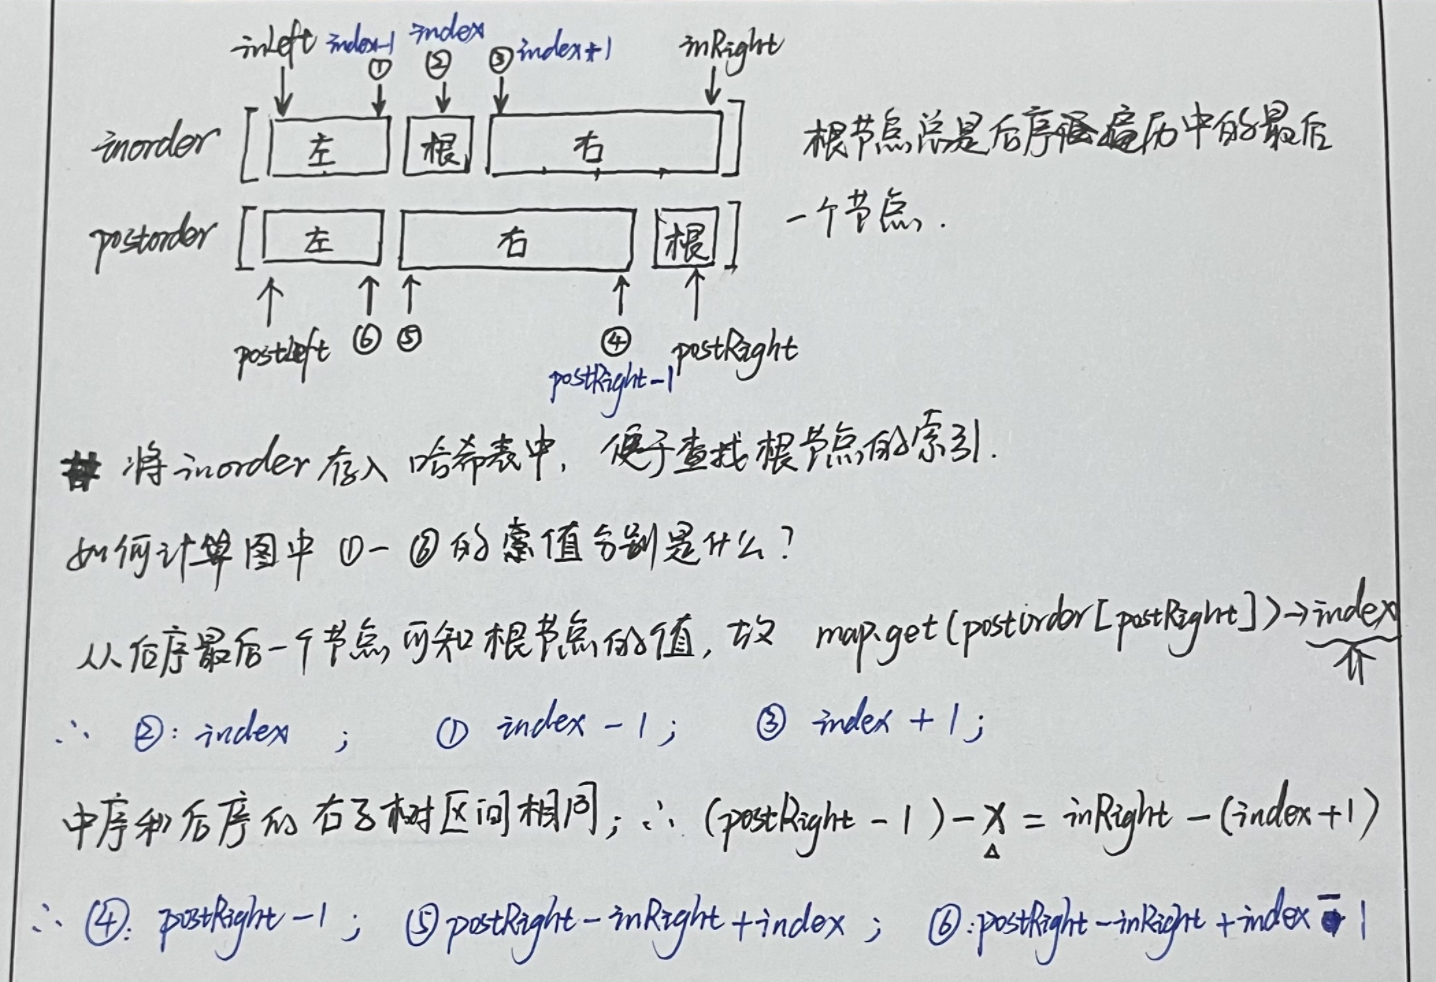 inLeft index-1 index index+1 inRight
① ② ③
inorder [ 左 根 右 ]
根节点总是后序遍历中的最后
一个节点.
postorder [ 左 右 根 ]
postLeft ⑥ ⑤ ④ postRight
postRight-1
# 将inorder存入哈希表中, 便于查找根节点的索引.
如何计算图中①-⑥的索值分别是什么?
从后序最后一个节点可知根节点的值, 故 map.get(postorder[postRight])→index
∴ ②: index ; ① index - 1; ③ index + 1;
中序和后序的右子树区间相同; ∴ (postRight - 1) - x = inRight - (index+1)
∴ ④: postRight - 1; ⑤ postRight - inRight + index ; ⑥: postRight - inRight + index - 1